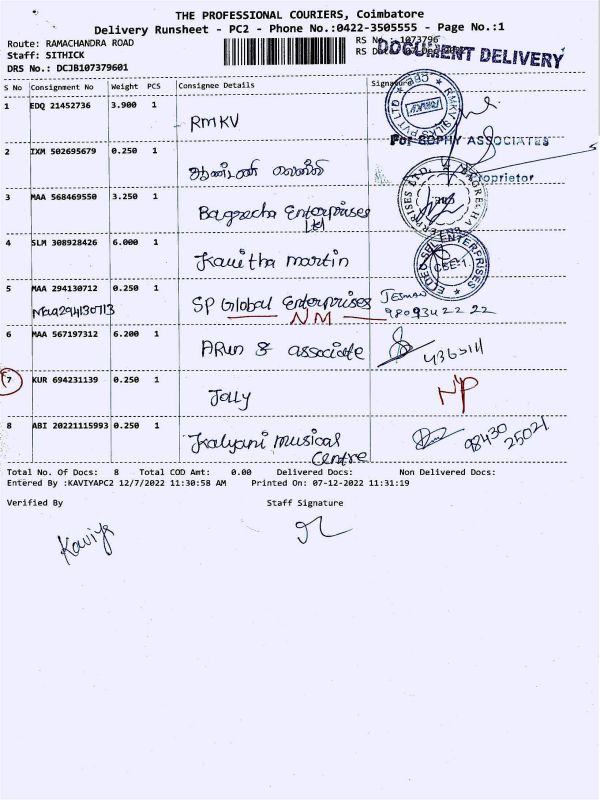 THE PROFESSIONAL COURIERS, Coimbatore
Delivery Runsheet - PC2 - Phone No.:0422-3505555 - Page No.:1
Route: RAMACHANDRA ROAD RS No.: 1073796
Staff: SITHICK RS Da
DOCUMENT DELIVERY
DRS No.: DCJB107379601
S No Consignment No Weight PCS Consignee Details Signature
1 EDQ 21452736 3.900 1 RMKV
RMKV SILKS PVT LTD CBE
RMKV
For SOPHY ASSOCIATES
Proprietor
2 IXM 502695679 0.250 1
3 MAA 568469550 3.250 1 Bagrecha Enterprises
Ltd
4 SLM 308928426 6.000 1 Kavitha martin
ENTERPRISES
CBE-1
5 MAA 294130712 0.250 1 SP Global Enterprises
Maa294130713 NM 98093422222
6 MAA 567197312 6.200 1 ARun & associate 436514
7 KUR 694231139 0.250 1 Jolly NP
8 ABI 20221115993 0.250 1 Kalyani musical 98430
Centre 25021
Total No. Of Docs: 8 Total COD Amt: 0.00 Delivered Docs: Non Delivered Docs:
Entered By :KAVIYAPC2 12/7/2022 11:30:58 AM Printed On: 07-12-2022 11:31:19
Verified By Staff Signature
Kaviya